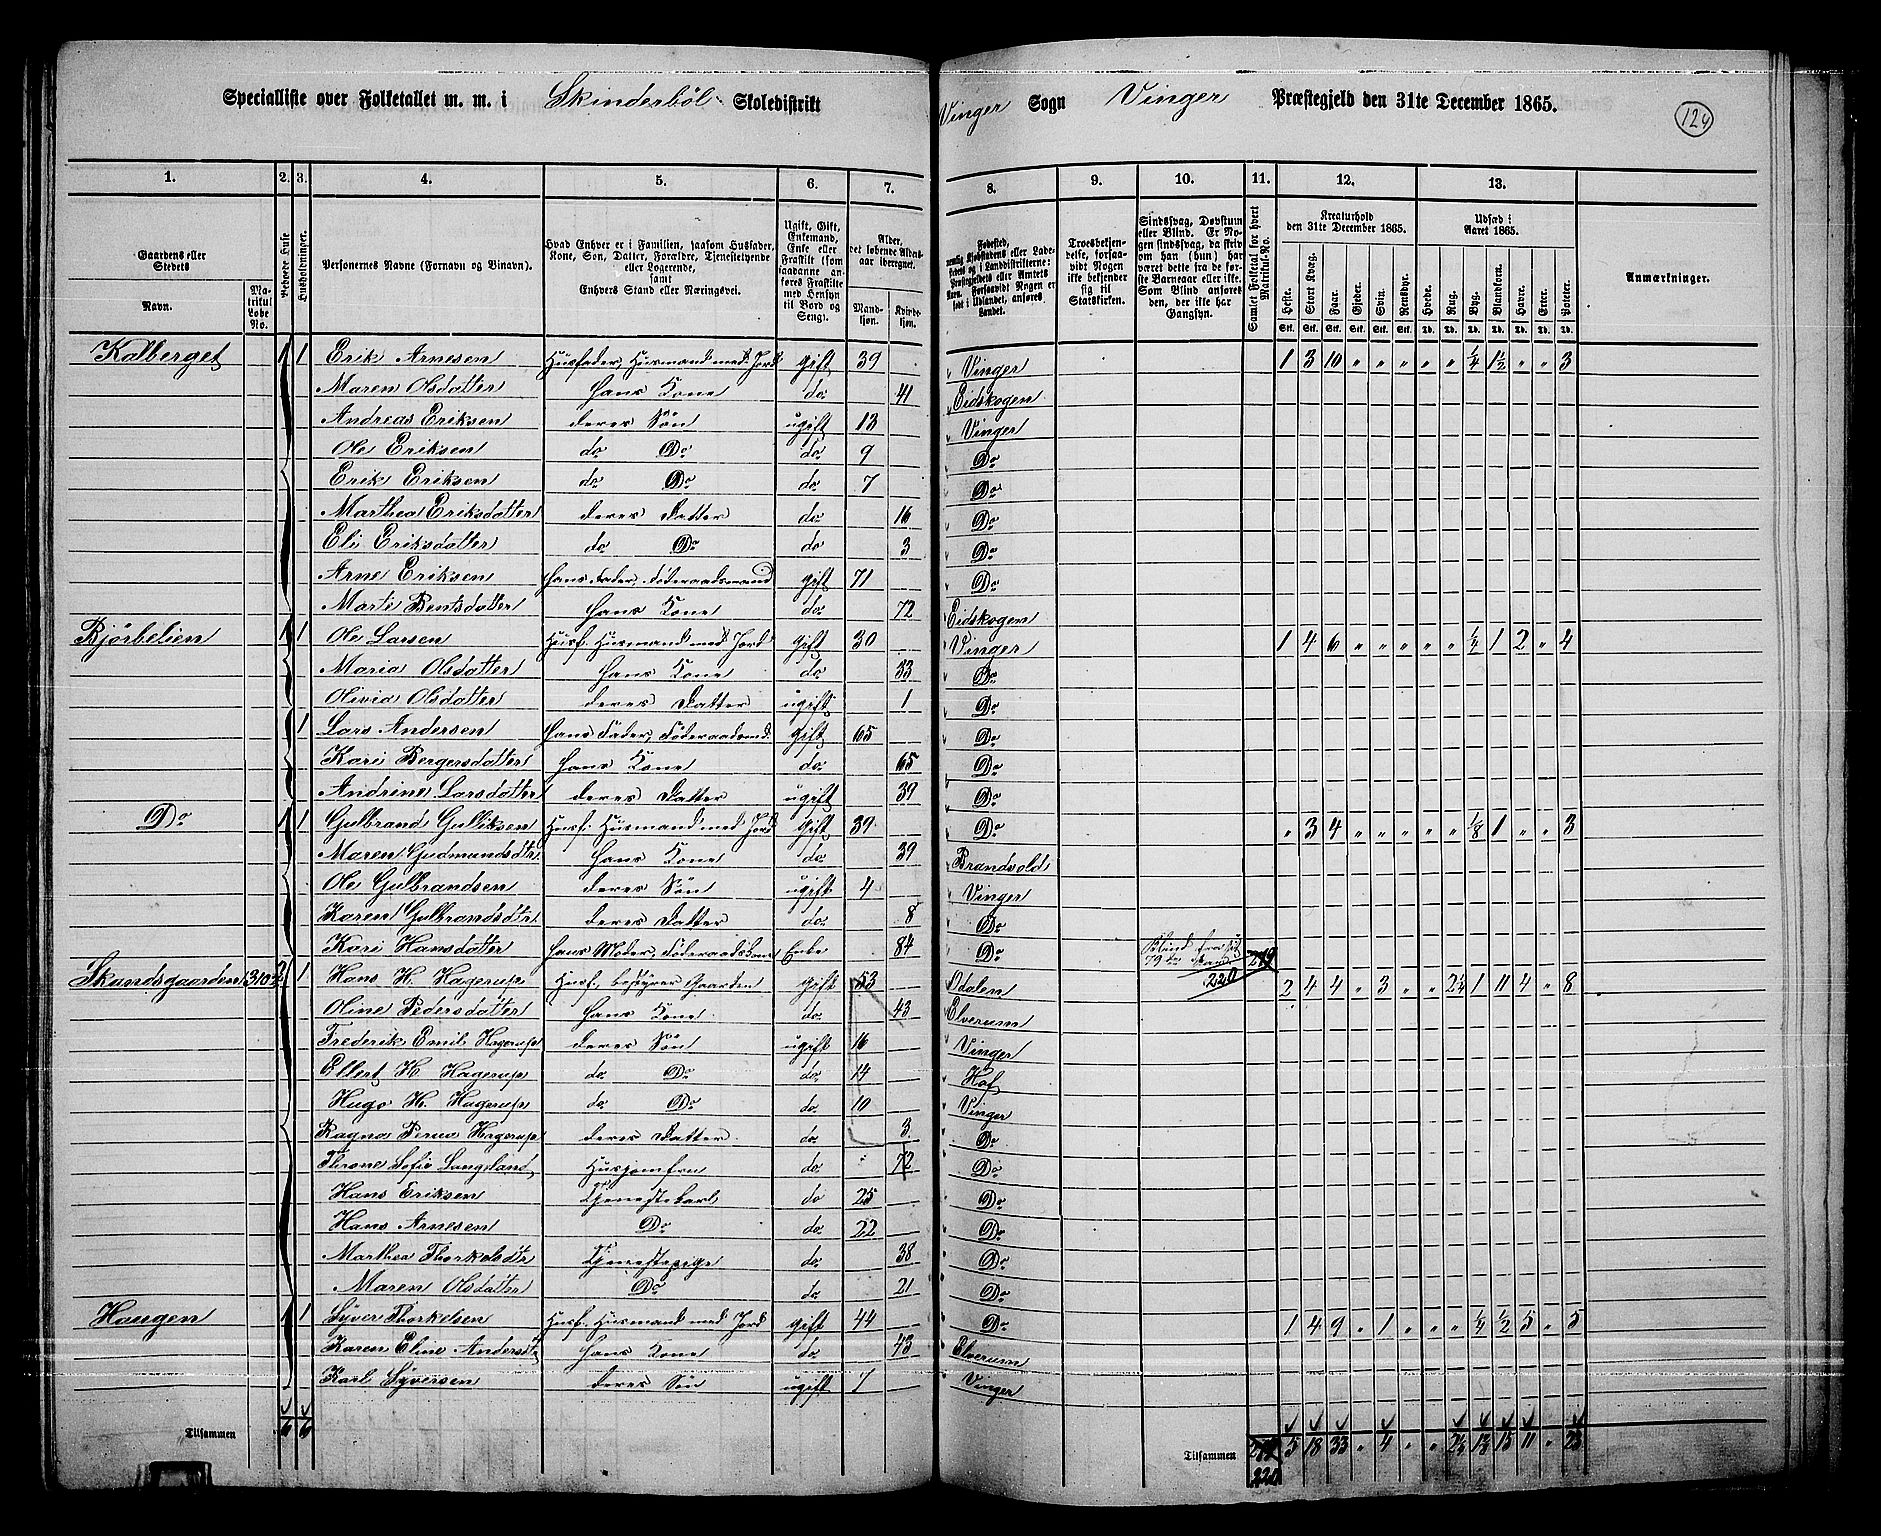 Specialliste over Folketallet m. m. i Skinderböl Skoledistrikt Vinger Sogn Vinger Præstegjeld den 31te December 1865. 124
1. 2. 3. 4. 5. 6. 7. 8. 9. 10. 11. 12. 13.
Gaardens eller Stedets Navn. Matrikul Løbe No. Beboede Huse Husholdninger. Personernes Navne (Fornavn og Binavn). Hvad Enhver er i Familien, saasom Husfader, Kone, Søn, Datter, Forældre, Tjenestetyende eller Logerende, samt Enhvers Stand eller Næringsvei. Ugift, Gift, Enkemand, Enke eller Fraskilt (som saadanne anføres Fraskilte med Hensyn til Bord og Seng). Alder, det løbende Aldersaar iberegnet. Mandkjøn. Kvindekjøn.
Troesbekjendelse, forsaavidt Nogen ikke bekjender sig til Statskirken. Sindssvag, Døvstum eller Blind. Er Nogen sindssvag, da skriv om han (hun) har været dette fra de første Barneaar eller ikke. Som Blind anføres den, der ikke har Gangsyn. Samlet Folketal for hvert Matrikul-No. Kreaturhold den 31te December 1865. Udsæd i Aaret 1865. Anmærkninger.
Heste. Stort Kvæg. Faar. Gjeder. Svin. Rensdyr. Hvede. Rug. Byg. Blandkorn. Havre. Erter. Poteter.
Kalberget 1 1 Erik Arnesen Husfader, Husmand med Jord gift 39 Vinger 1 3 10 " " " " " 1/4 1 1/2 " " 3
Maren Olsdatter hans Kone do 41 Eidskogen
Andreas Eriksen deres Søn ugift 13 Vinger
Ole Eriksen do Do do 9 Do
Erik Eriksen do Do do 7 Do
Marthea Eriksdatter deres Datter do 16 Do
Eli Eriksdatter do Do do 3 Do
Arne Eriksen hans Fader, Föderaadsmand gift 71 Do
Marte Bentsdatter hans Kone do 72 Eidskogen
Bjørbelien 1 1 Ole Larsen Husf. Husmand med Jord gift 30 Vinger 1 4 6 " " " " " 1/4 1 2 " 4
Maria Olsdatter hans Kone do 33 Do
Olivia Olsdatter deres Datter ugift 1 Do
1 Lars Andersen hans Fader, Föderaadsmd. gift 65 Do
Kari Bergersdatter hans Kone do 65 Do
Andrine Larsdatter deres Datter ugift 39 Do
Do 1 1 Gulbrand Gulliksen Husf. Husmand med Jord gift 39 Do " 3 4 " " " " " 1/8 1 " " 3
Maren Gudmundsdtr hans Kone do 39 Brandvold
Ole Gulbrandsen deres Søn ugift 4 Vinger
Karen Gulbrandsdtr deres Datter do 8 Do
Kari Hansdatter hans Moder, Föderaadskone Enke 84 Do Blind fra sit 79de 219
Skandsgaarden 310 2 1 Hans H. Hagerup Husf. bestyrer Gaarden gift 53 Odalen 220 2 4 4 " 3 " " 2 1/4 1 11 4 " 8
Oline Pedersdatter hans Kone do 43 Elverum
Frederik Emil Hagerup deres Søn ugift 16 Vinger
Ellert H. Hagerup do Do do 14 Hof
Hugo H. Hagerup do Do do 10 Vinger
Ragna Hagerup deres Datter do 3 Do
Sofie Langeland Husjomfru do 72 Do
Hans Eriksen Tjenestekarl do 25 Do
Hans Arnesen Do do 22 Do
Marthea Thorkelsdtr Tjenestepige do 38 Do
Maren Olsdatter Do do 21 Do
Haugen 1 1 Syver Thorkelsen Husf. Husmand med Jord gift 44 Do 1 4 9 " 1 " " " 1/4 1/2 5 " 5
Karen Eline Andersdtr hans Kone do 43 Elverum
Karl Syversen deres Søn ugift 7 Vinger
Tilsammen 6 6 Tilsammen 219 5 18 33 " 4 " " 2 1/4 15 11 " 23
220